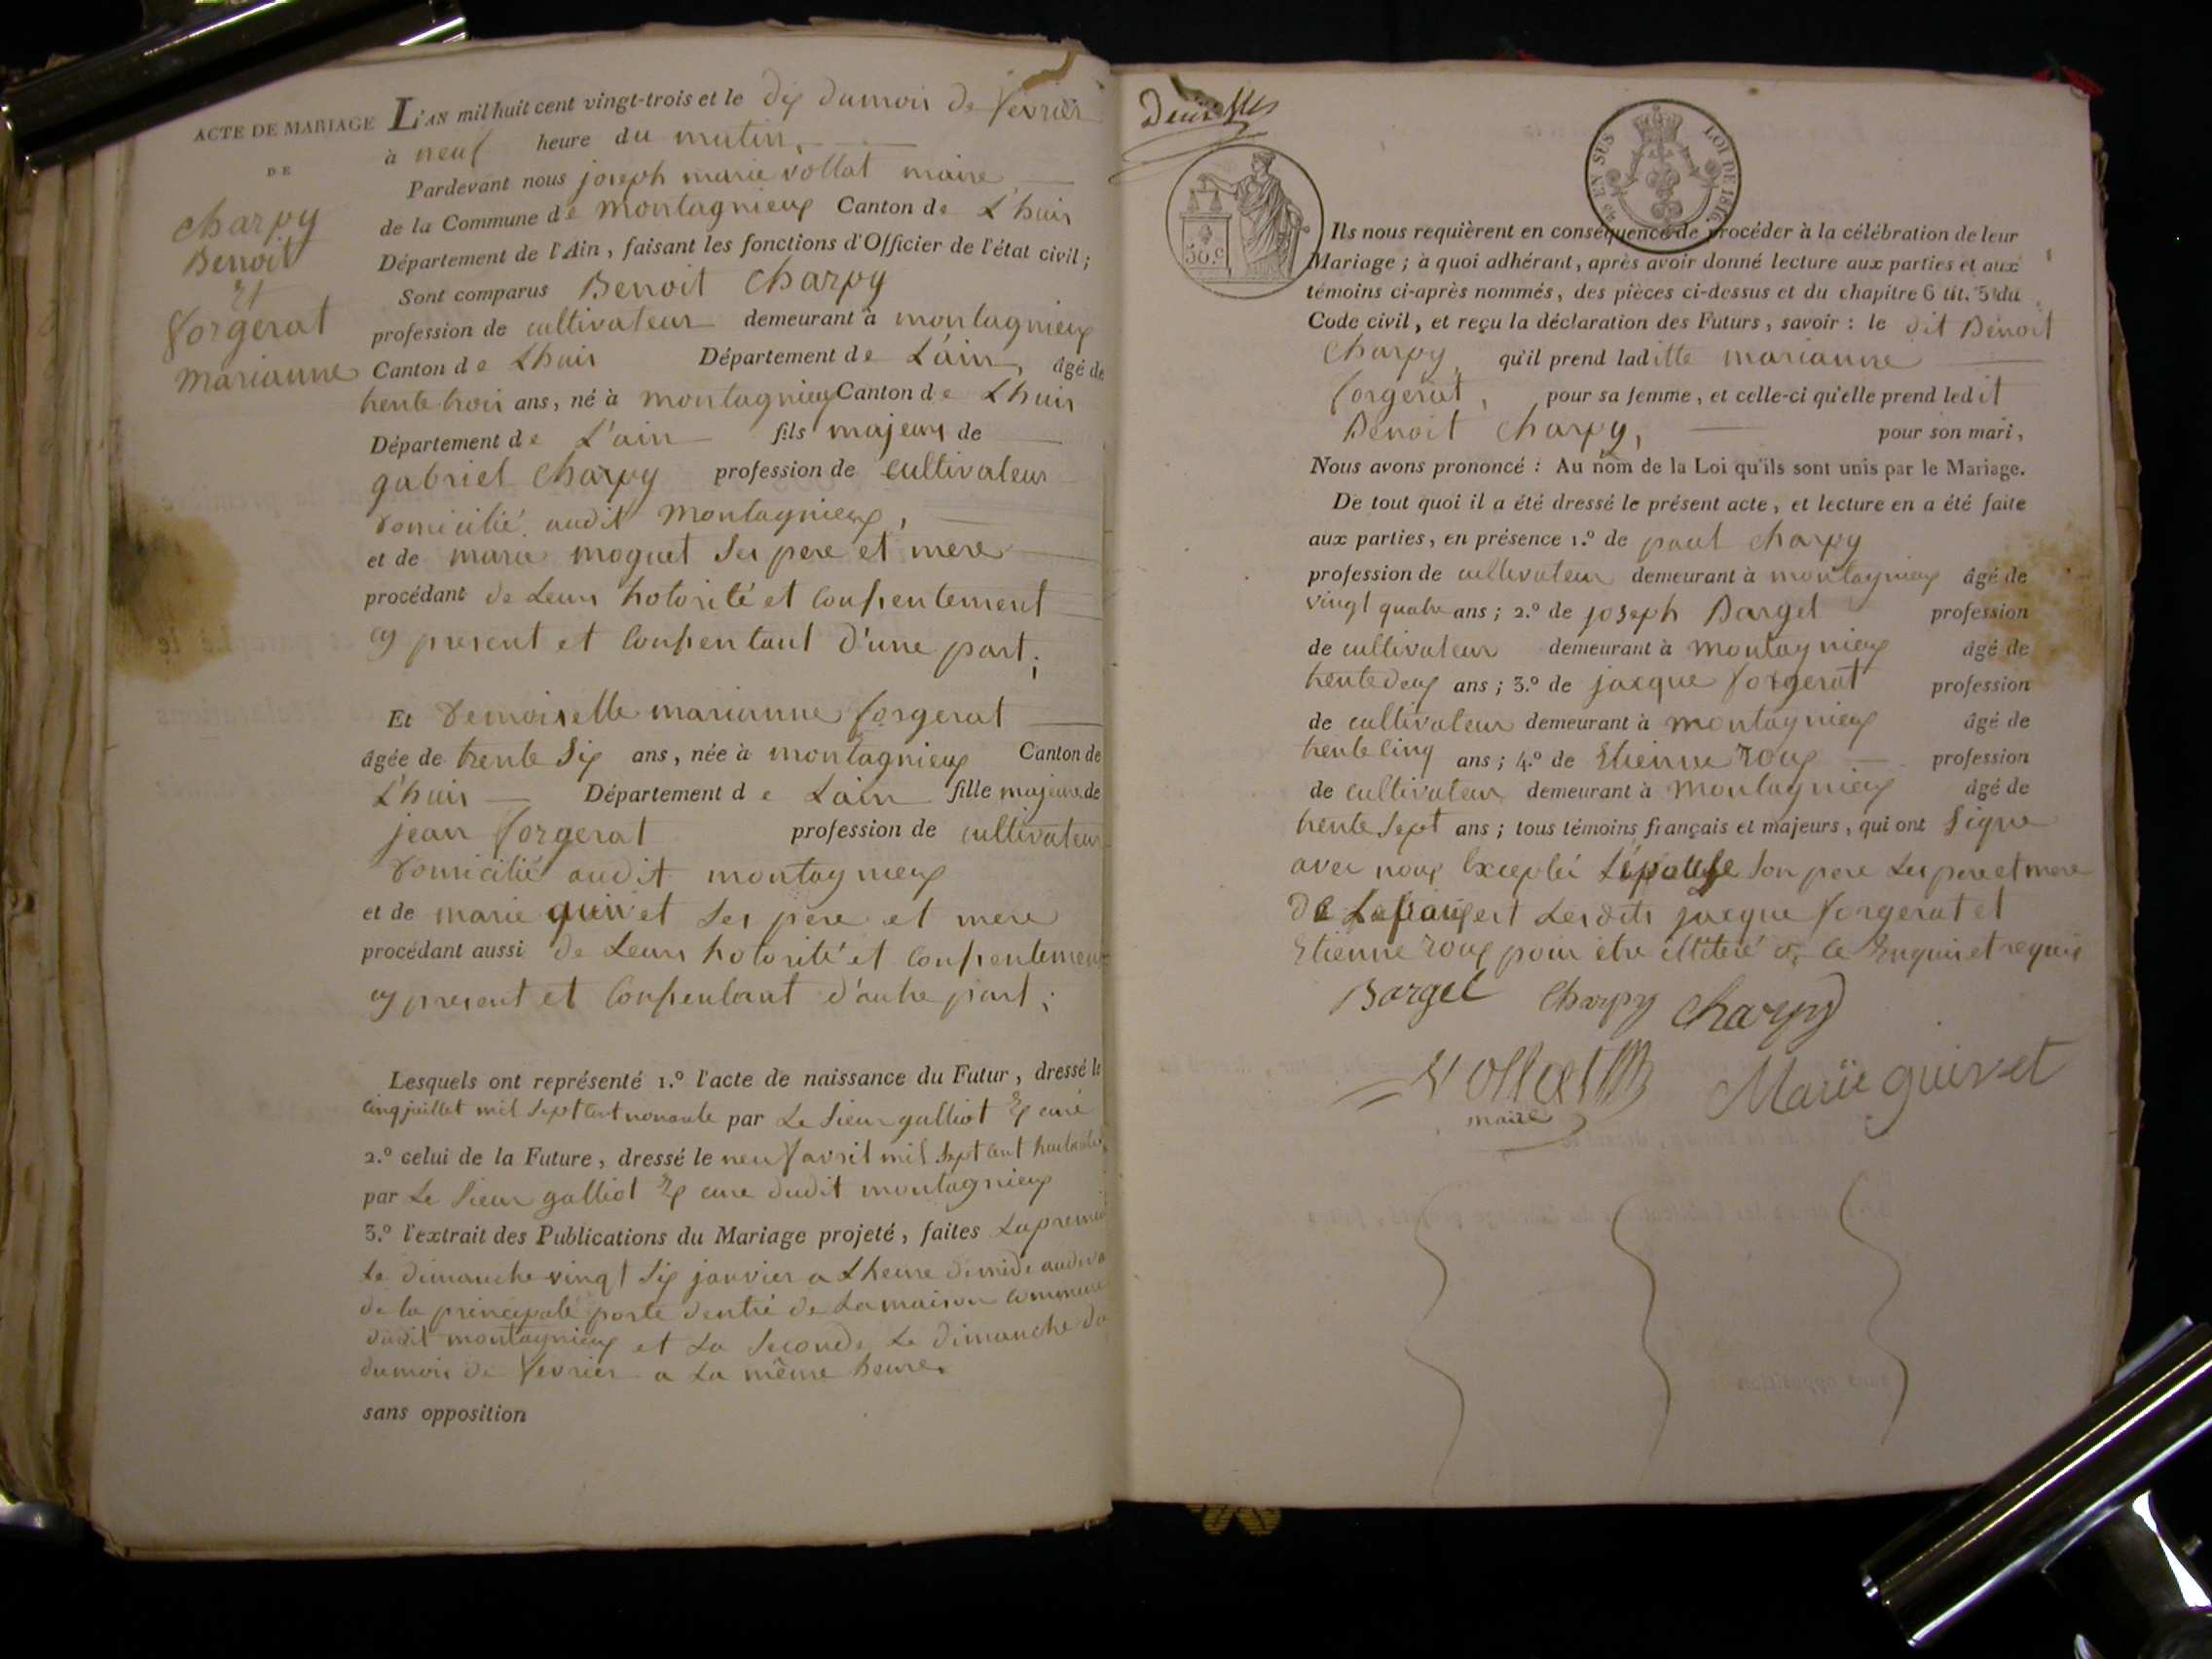 ACTE DE MARIAGE
DE
charpy
Benoit
Et
forgerat
marianne
L'AN mil huit cent vingt-trois et le dix du mois de fevrier
à neuf heure du matin,
Pardevant nous joseph marie vollat maire
de la Commune de montagnieux Canton de L'huis
Département de l'Ain, faisant les fonctions d'Officier de l'état civil;
Sont comparus Benoit Charpy
profession de cultivateur demeurant à montagnieux
Canton de Lhuis Département de L'ain, âgé de
trente trois ans, né à montagnieux Canton de Lhuis
Département de L'ain fils majeur de
gabriel Charpy profession de cultivateur
domicilié audit Montagnieux,
et de marie moquet Ses pere et mere
procédant de Leurs hotorité et Consentement
cy present et Consentant d'une part;
Et Demoiselle marianne forgerat
âgée de trente Six ans, née à montagnieux Canton de
L'huis Département de Lain fille majeure de
jean forgerat profession de cultivateur
domicilié audit montagnieux
et de marie quinet Ses pere et mere
procédant aussi de Leurs hotorité et Consentement
cy present et Consentant d'autre part;
Lesquels ont représenté 1.º l'acte de naissance du Futur, dressé le
cinq juillet mil Sept Cent nonante par Le Sieur galliot Ex curé
2.º celui de la Future, dressé le neuf avril mil Sept Cent
par Le Sieur galliot Ex cure dudit montagnieux
3.º l'extrait des Publications du Mariage projeté, faites La premie
Le dimanche vingt Six janvier a Lheure de midi au deva
de la principale porte dentré de La maison commune
dudit montagnieux et La Seconde Le dimanche
du mois de fevrier a La même heure.
sans opposition
50.c
EN SUS LOI DE 1816.
Ils nous requièrent en conséquence de procéder à la célébration de leur
Mariage; à quoi adhérant, après avoir donné lecture aux parties et aux
témoins ci-après nommés, des pièces ci-dessus et du chapitre 6 tit. 5 du
Code civil, et reçu la déclaration des Futurs, savoir: le dit Benoit
Charpy, qu'il prend laditte marianne
forgerat, pour sa femme, et celle-ci qu'elle prend ledit
Benoit Charpy, pour son mari,
Nous avons prononcé: Au nom de la Loi qu'ils sont unis par le Mariage.
De tout quoi il a été dressé le présent acte, et lecture en a été faite
aux parties, en présence 1.º de paul charpy
profession de cultivateur demeurant à montagnieux âgé de
vingt quatre ans; 2.º de joseph Barget profession
de cultivateur demeurant à montagnieux âgé de
trente deux ans; 3.º de jacque forgerat profession
de cultivateur demeurant à montagnieux âgé de
trente cinq ans; 4.º de Etienne roux profession
de cultivateur demeurant à Montagnieux âgé de
trente Sept ans; tous témoins français et majeurs, qui ont Signe
avec nous Excepté L'épouse Son pere Les pere et mere
de Les dits jacque forgerat et
Etienne roux pour etre illiteré de ce Enquis et requis
Barget Charpy Charpy
Vollat
maire
Marie guinet